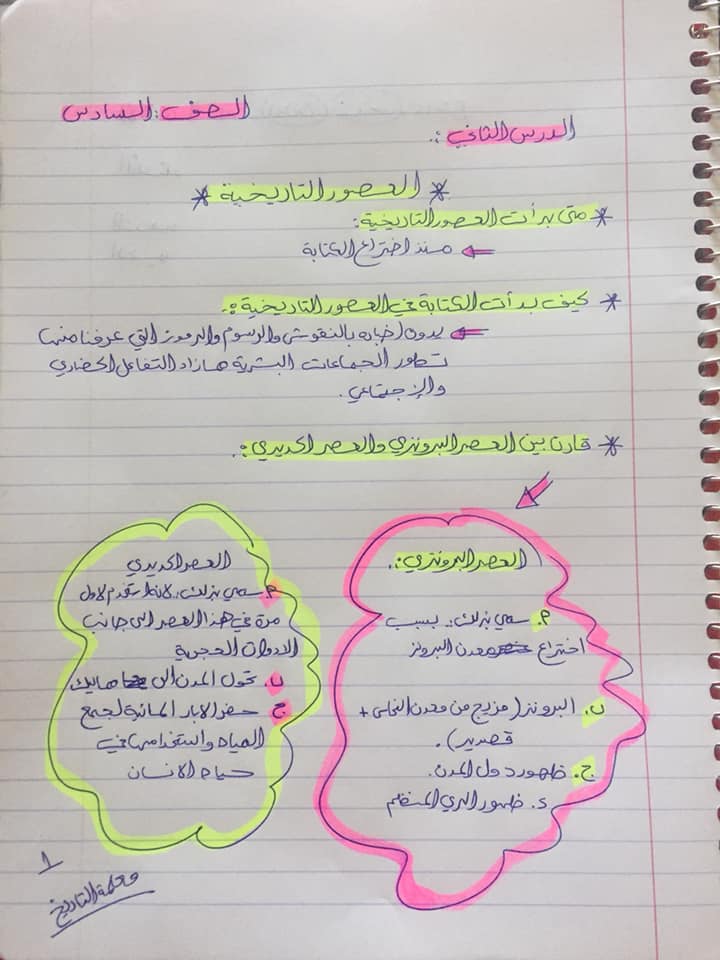 الصف : السادس
الدرس الثاني :.
* العصور التاريخية *
* متى بدأت العصور التاريخية :
منذ اختراع الكتابة
* كيف بدأت الكتابة في العصور التاريخية :.
بدون اخباره بالنقوش والرسوم والرموز التي عرفنا منها
تطور الجماعات البشرية مازاد التفاعل الحضاري
والإجتماعي .
* قارن بين العصر البرونزي والعصر الحديدي :.
العصر البرونزي :.
م. سمي بذلك :. بسبب
اختراع معدن البرونز
ب. البرونز ( مزيج من معدن النحاس +
قصدير ) .
ج. ظهور دول المدن .
د. ظهور الري المنظم
العصر الحديدي
م سمي بذلك ، لانه استخدم لاول
مرة في هذا العصر الى جانب
الادوات الحجرية
ب. تحول المدن الى ممالك
ج حفر الابار المائية لجمع
المياه واستخدامها في
حياه الانسان
1
معلمة التاريخ